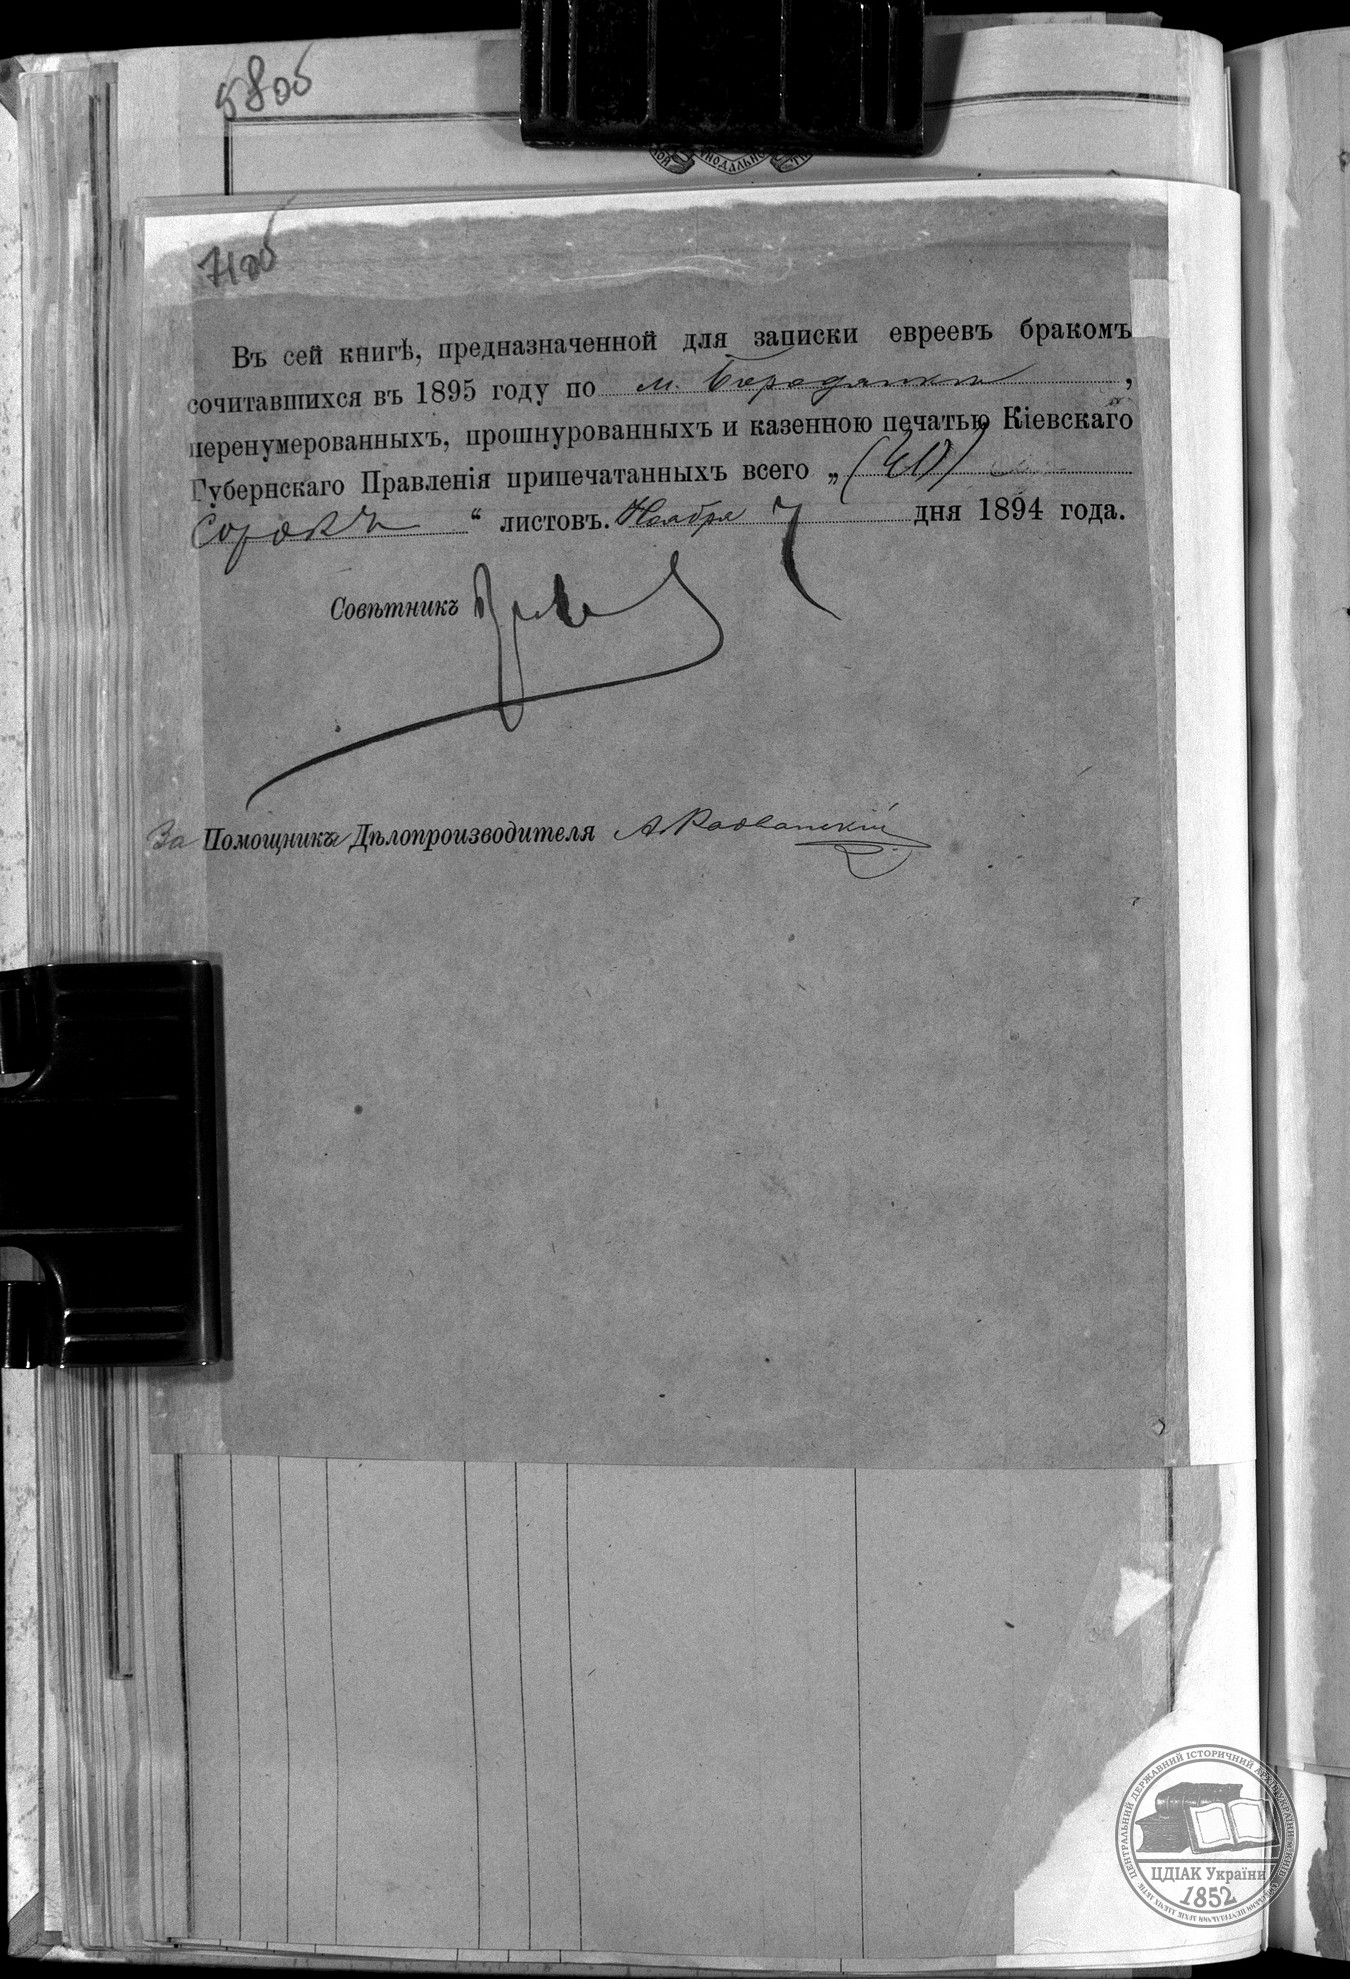 58об
71об
Въ сей книгѣ, предназначенной для записки евреевъ бракомъ
сочитавшихся въ 1895 году по м. Бородянки,
перенумерованныхъ, прошнурованныхъ и казенною печатью Кіевскаго
Губернскаго Правленія припечатанныхъ всего „(40)
Сорокъ“ листовъ. Ноября 7 дня 1894 года.
Совѣтникъ
За Помощника Дѣлопроизводителя А. Радванскій
ЦЕНТРАЛЬНИЙ ДЕРЖАВНИЙ ІСТОРИЧНИЙ АРХІВ УКРАЇНИ
ЦДІАК України
1852